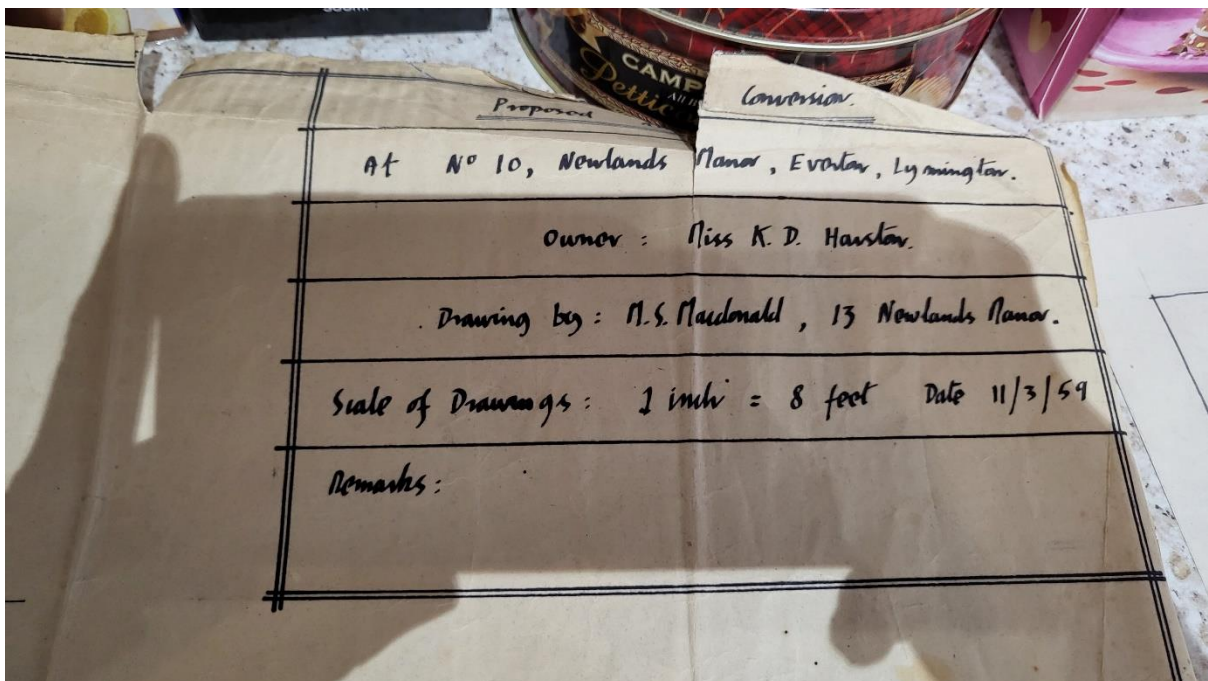 CAMP
Pettic
Proposed Conversion.
At No 10, Newlands Manor, Everton, Lymington.
Owner: Miss K. D. Harston.
Drawing by: M.S. Macdonald, 13 Newlands Manor.
Scale of Drawings: 1 inch = 8 feet Date 11/3/59
Remarks: